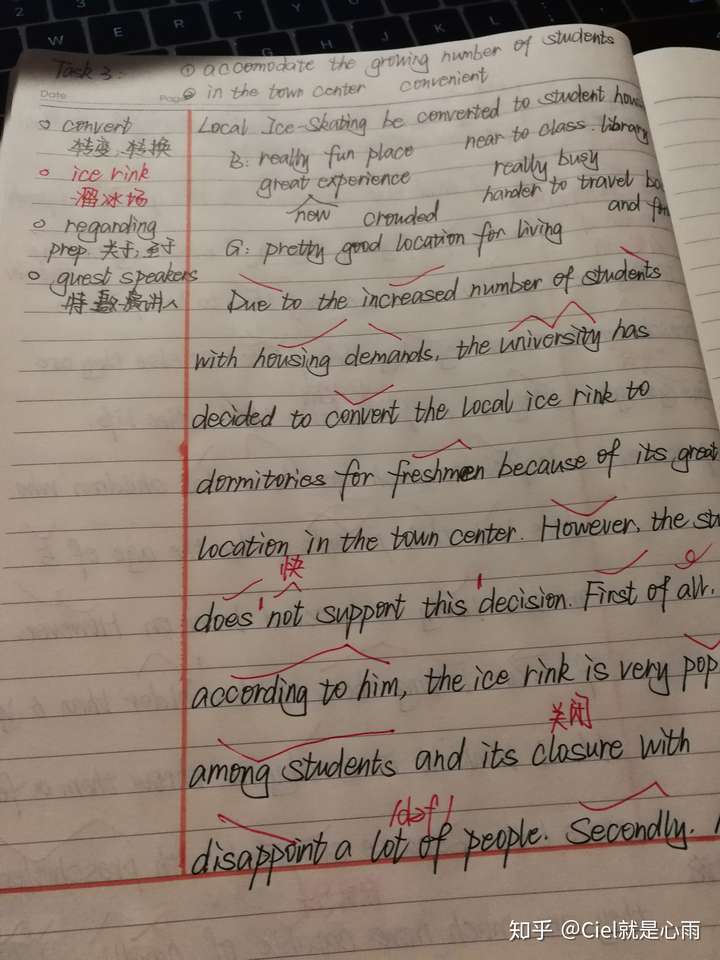 Task 3: ① accomodate the growing number of students
Date Page ② in the town center convenient
convert
转变、转换
ice rink
溜冰场
regarding
prep. 关于,至于
guest speakers
特邀演讲人
Local Ice-Skating be converted to student
B: really fun place near to class. library
great experience really busy
now crouded harder to travel
and
G: pretty good location for living
Due to the increased number of students
with housing demands, the university has
decided to convert the local ice rink to
dormitories for freshmen because of its great
location in the town center. However, the
快
does not support this decision. First of all,
according to him, the ice rink is very pop
关闭
among students and its closure with
disappoint a lot of people. Secondly.
知乎 @Ciel就是心雨